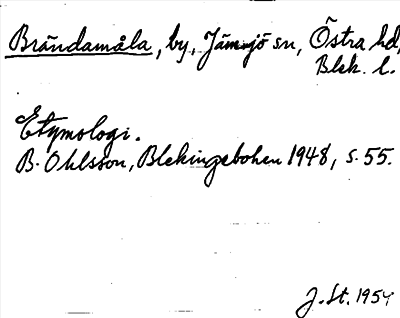 Brändamåla, by, Jämjö sn, Östra hd,
Blek. l.
Etymologi.
B. Ohlsson, Blekingeboken 1948, s. 55.
J. St. 1954